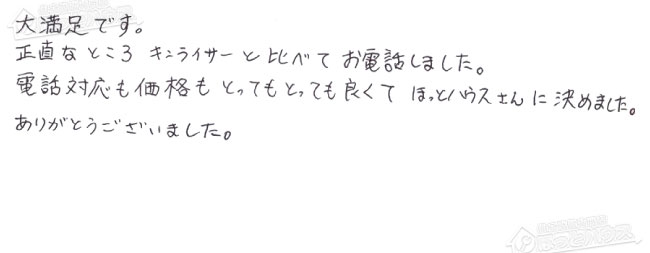 大満足です。
正直なところ キンライサーと比べて お電話しました。
電話対応も価格も とってもとっても良くて ほっとハウスさんに決めました。
ありがとうございました。